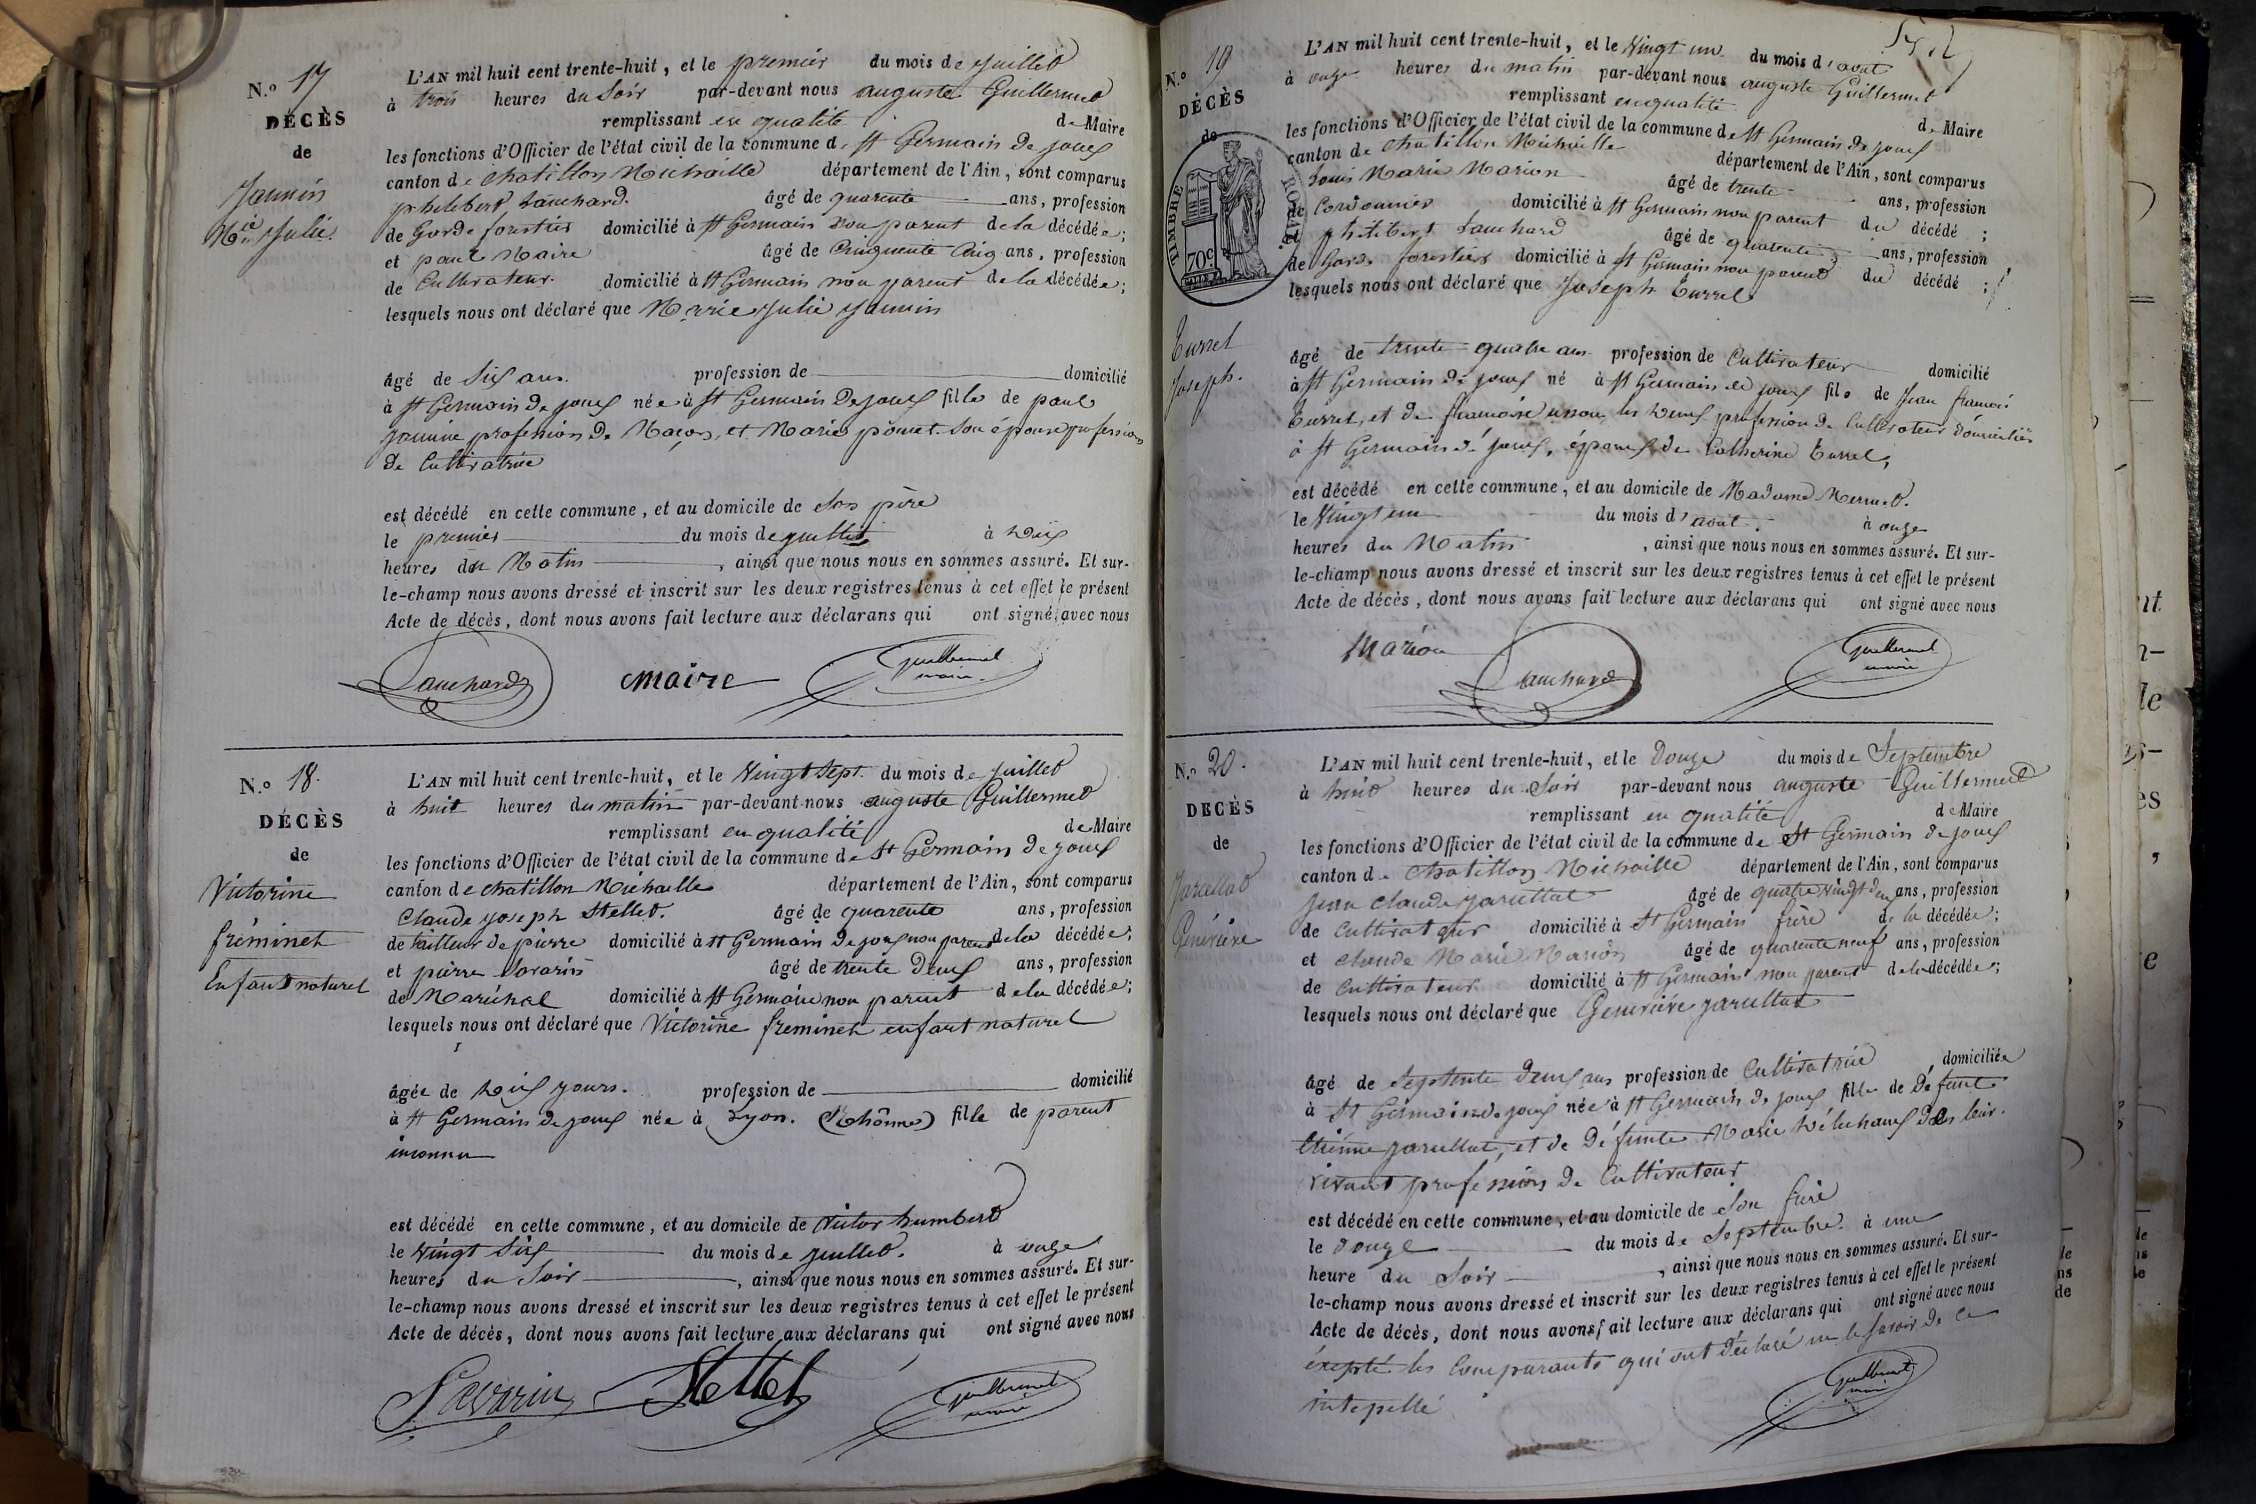 N.o 17
DÉCÈS
de
Jannin
Mie Julie.
L'AN mil huit cent trente-huit, et le premier du mois de juillet
à trois heures du Soir par-devant nous auguste Guillermet
remplissant en qualité de Maire
les fonctions d'Officier de l'état civil de la commune de St Germain de joux
canton de chatillon Michaille département de l'Ain, sont comparus
philebert Lauchard. âgé de quarente ans, profession
de Garde forestier domicilié à St Germain non parent de la décédée;
et paul Maire âgé de Cinquente Cinq ans, profession
de Cultivateur. domicilié à St Germain non parent de la décédée;
lesquels nous ont déclaré que Marie Julie jannin
âgé de Six ans. profession de domicilié
à St Germain de joux née à St Germain De joux fille de paul
jannin profession De Maçon, et Marie poncet Son épouse profession
de Cultivatrice
est décédé en cette commune, et au domicile de Son père
le premier du mois de juillet à dix
heures du Matin, ainsi que nous nous en sommes assuré. Et sur-
le-champ nous avons dressé et inscrit sur les deux registres tenus à cet effet le présent
Acte de décès, dont nous avons fait lecture aux déclarans qui ont signé avec nous
Lauchard maire Guillermet
maire
N.o 18.
DÉCÈS
de
Victorine
fréminet
Enfant naturel
L'AN mil huit cent trente-huit, et le Vingt Sept du mois de juillet
à huit heures du matin par-devant nous auguste Guillermet
remplissant en qualité de Maire
les fonctions d'Officier de l'état civil de la commune de St Germain de joux
canton de chatillon Michaille département de l'Ain, sont comparus
Claude joseph Stellet. âgé de quarente ans, profession
de tailleur de pierre domicilié à St Germain de joux non parent de la décédée;
et pierre Savarin âgé de trente Deux ans, profession
de Maréchal domicilié à St Germain non parent de la décédée;
lesquels nous ont déclaré que Victorine freminet enfant naturel
âgée de dix jours. profession de domicilié
à St Germain de joux née à Lyon. (Rhône) fille de parent
inconnu
est décédé en cette commune, et au domicile de Victor humbert
le Vingt Six du mois de juillet. à onze
heures du Soir, ainsi que nous nous en sommes assuré. Et sur-
le-champ nous avons dressé et inscrit sur les deux registres tenus à cet effet le présent
Acte de décès, dont nous avons fait lecture aux déclarans qui ont signé avec nous
Savarin Stellet Guillermet
maire
N.o 19
DÉCÈS
de
TIMBRE ROYAL
70c
Turrel
Joseph.
L'AN mil huit cent trente-huit, et le Vingt un du mois d'aout
à onze heures du matin par-devant nous auguste Guillermet
remplissant en qualité de Maire
les fonctions d'Officier de l'état civil de la commune de St Germain de joux
canton de chatillon Michaille département de l'Ain, sont comparus
Louis Marie Marion âgé de trente ans, profession
de Cordonnier domicilié à St Germain non parent du décédé;
et philibert Lauchard âgé de quarente ans, profession
de Garde forestier domicilié à St Germain non parent du décédé;
lesquels nous ont déclaré que Joseph Turrel
âgé de trente quatre ans profession de Cultivateur domicilié
à St Germain de joux né à St Germain de joux fils de Jean francois
Turrel, et de francoise les deux profession de Cultivateur domiciliés
à St Germain de joux, époux de Catherine Turrel,
est décédé en cette commune, et au domicile de Madame Mermet.
le Vingt un du mois d'aout à onze
heures du Matin, ainsi que nous nous en sommes assuré. Et sur-
le-champ nous avons dressé et inscrit sur les deux registres tenus à cet effet le présent
Acte de décès, dont nous avons fait lecture aux déclarans qui ont signé avec nous
Marion Lauchard Guillermet
maire
N.o 20.
DECÈS
de
Jarcellat
Geneviève
L'AN mil huit cent trente-huit, et le Douze du mois de Septembre
à huit heures du Soir par-devant nous auguste Guillermet
remplissant en qualité de Maire
les fonctions d'Officier de l'état civil de la commune de St Germain de joux
canton de Chatillon Michaille département de l'Ain, sont comparus
jean claude jarcellat âgé de quatre Vingt deux ans, profession
de Cultivateur domicilié à St Germain frère de la décédée;
et claude Marie Marion âgé de quarente neuf ans, profession
de Cultivateur domicilié à St Germain non parent de la décédée;
lesquels nous ont déclaré que Geneviève jarcellat
âgé de Septente Deux ans profession de Cultivatrice domiciliée
à St Germain de joux née à St Germain de joux fille de Défunt
Etienne jarcellat, et de Défunte Marie dans leur
vivant profession de Cultivateur
est décédé en cette commune, et au domicile de Son frère
le Douze du mois de Septembre à une
heure du Soir, ainsi que nous nous en sommes assuré. Et sur-
le-champ nous avons dressé et inscrit sur les deux registres tenus à cet effet le présent
Acte de décès, dont nous avons fait lecture aux déclarans qui ont signé avec nous
éxepté les Comparants qui ont déclaré ne le savoir de ce
intepellé
Guillermet
maire